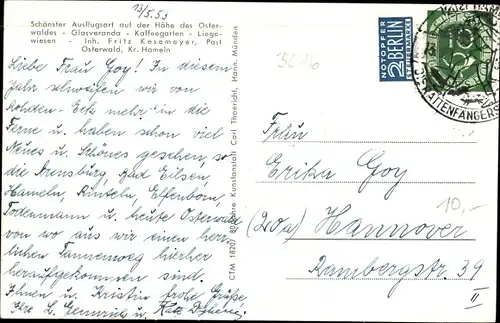 13/5.53
Schönster Ausflugsort auf der Höhe des Oster-
waldes - Glasveranda - Kaffeegarten - Liege-
wiesen - Inh. Fritz Kesemeyer, Post
Osterwald, Kr. Hameln
Liebe Frau Goy! In diesem
Jahr schweifen wir von
Rohden-Eck mehr in die
Ferne u. haben schon viel
Neues u. Schönes gesehen, so
die Arensburg, Bad Eilsen,
Hameln, Rinteln,
Todenmann u. heute Osterwald
von wo aus wir einen herr-
lichen Tannenweg hierher
heraufgekommen sind.
Ihnen u. Kristin frohe Grüße,
Ihre L.
CTM 18207 80 Jahre Kunstanstalt Carl Thoericht, Hann. Münden
NOTOPFER
2 BERLIN
STEUERMARKE
10
RATTENFÄNGERS
Frau
Erika Goy
(20a) Hannover
Rambergstr. 39
II
10,-